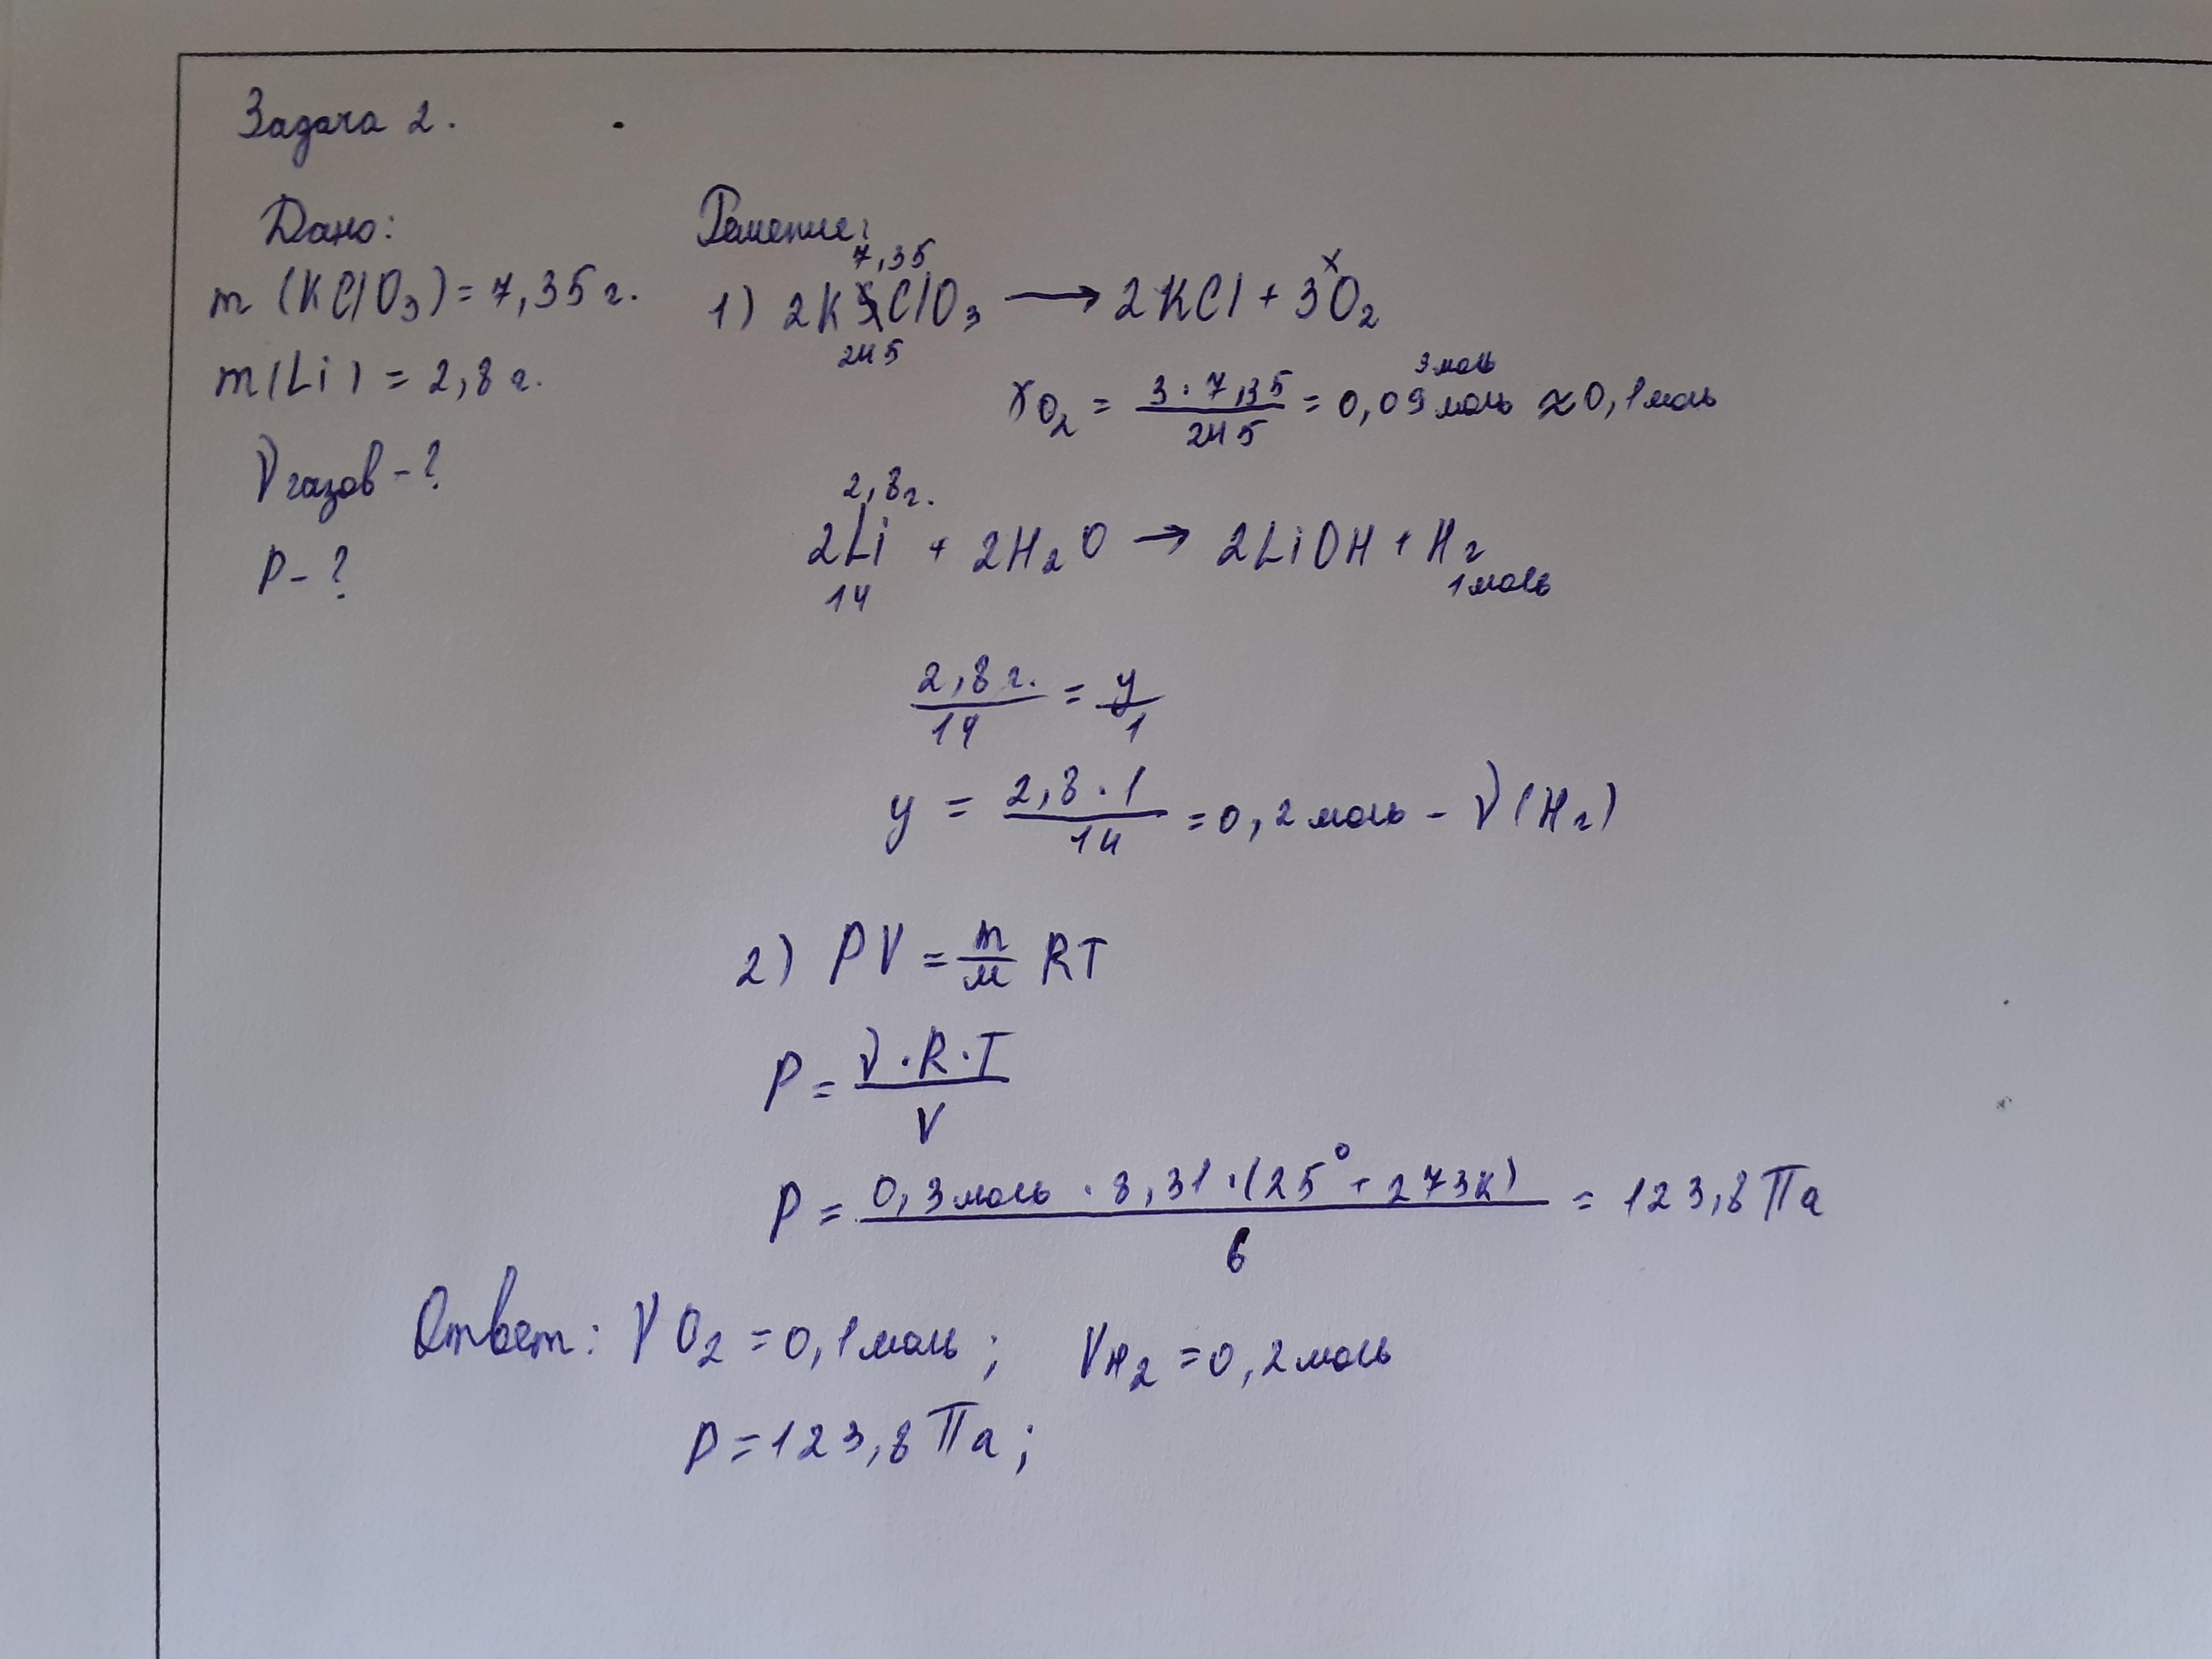 Задача 2.
Дано:
m (KClO3) = 7,35 г.
m(Li) = 2,8 г.
ν газов - ?
P - ?
Решение:
7,35 x
1) 2KClO3 → 2KCl + 3O2
245 3 моль
xO2 = 3 · 7,35 / 245 = 0,09 моль ≈ 0,1 моль
2,8 г.
2Li + 2H2O → 2LiOH + H2
14 1 моль
2,8 г. / 14 = y / 1
y = 2,8 · 1 / 14 = 0,2 моль - ν (H2)
2) PV = m/м RT
P = ν · R · T / V
P = 0,3 моль · 8,31 · (25° + 273K) / 6 = 123,8 Па
Ответ: ν O2 = 0,1 моль; ν H2 = 0,2 моль
P = 123,8 Па;